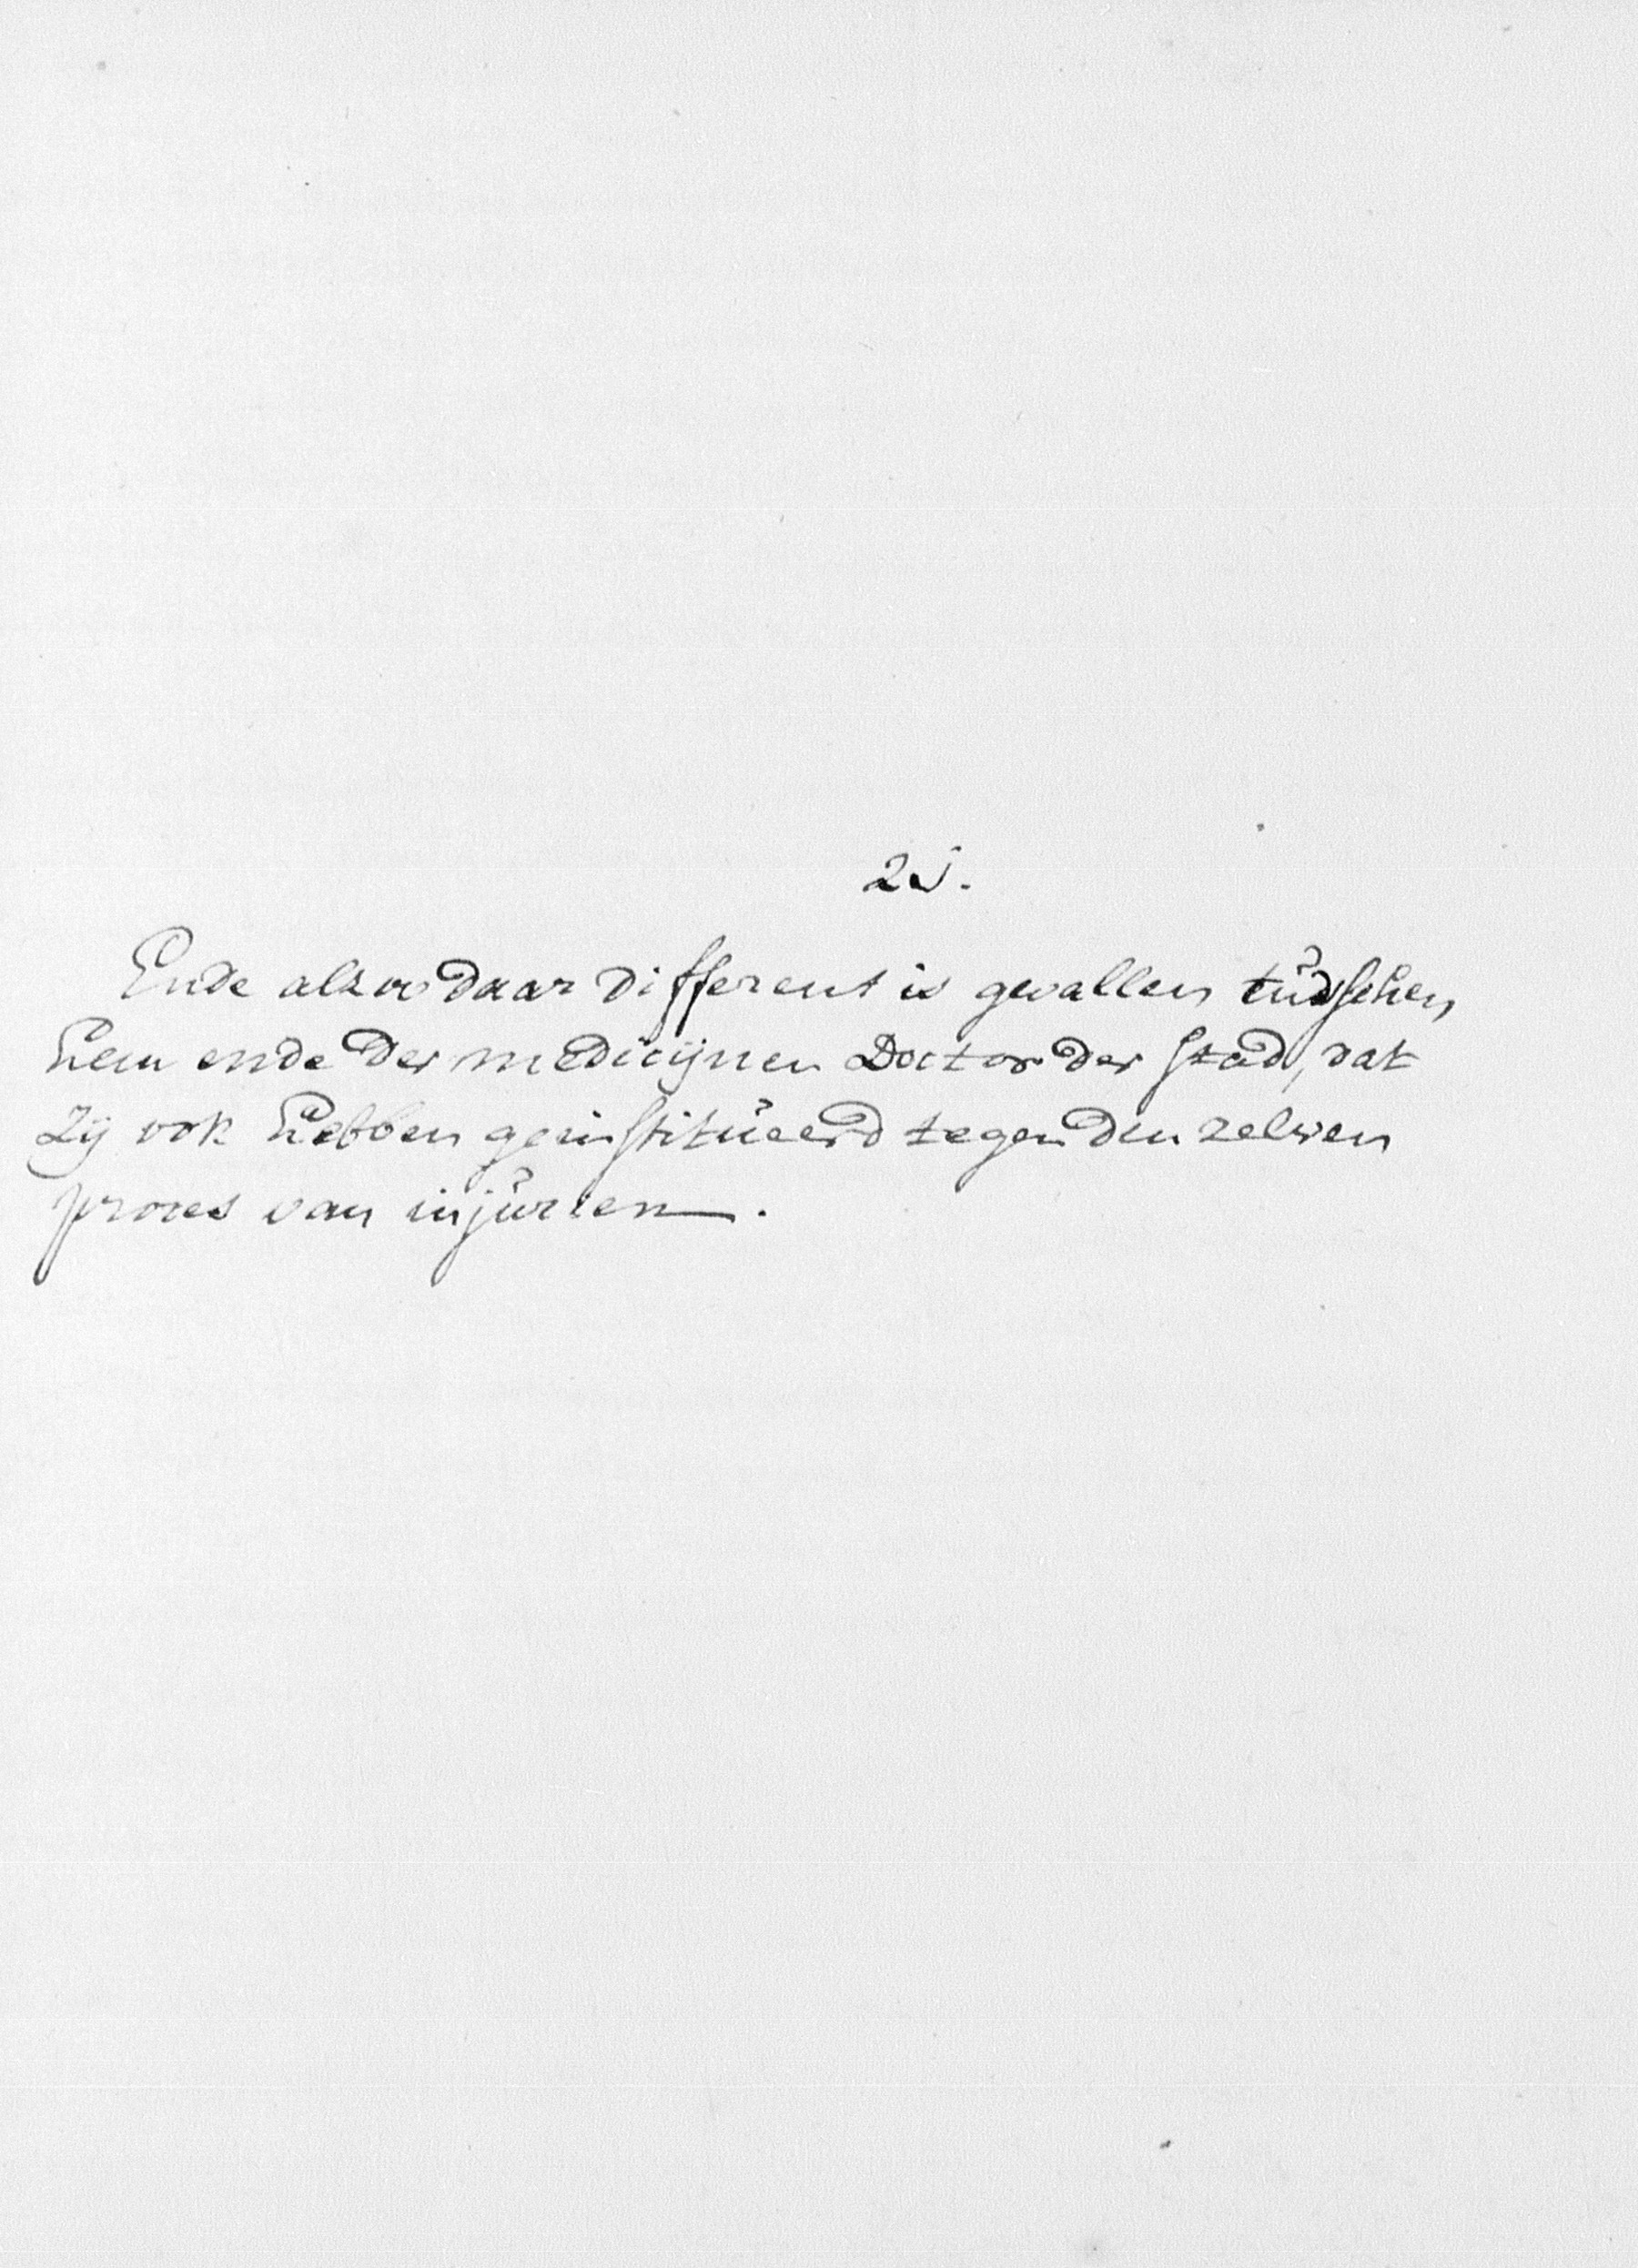 25.
Ende alzoo daar different is gevallen tusschen
hem ende der medicijnen Doctor der stad, dat
zij ook hebben geinstitueerd tegen den zelven
proces van injurien.